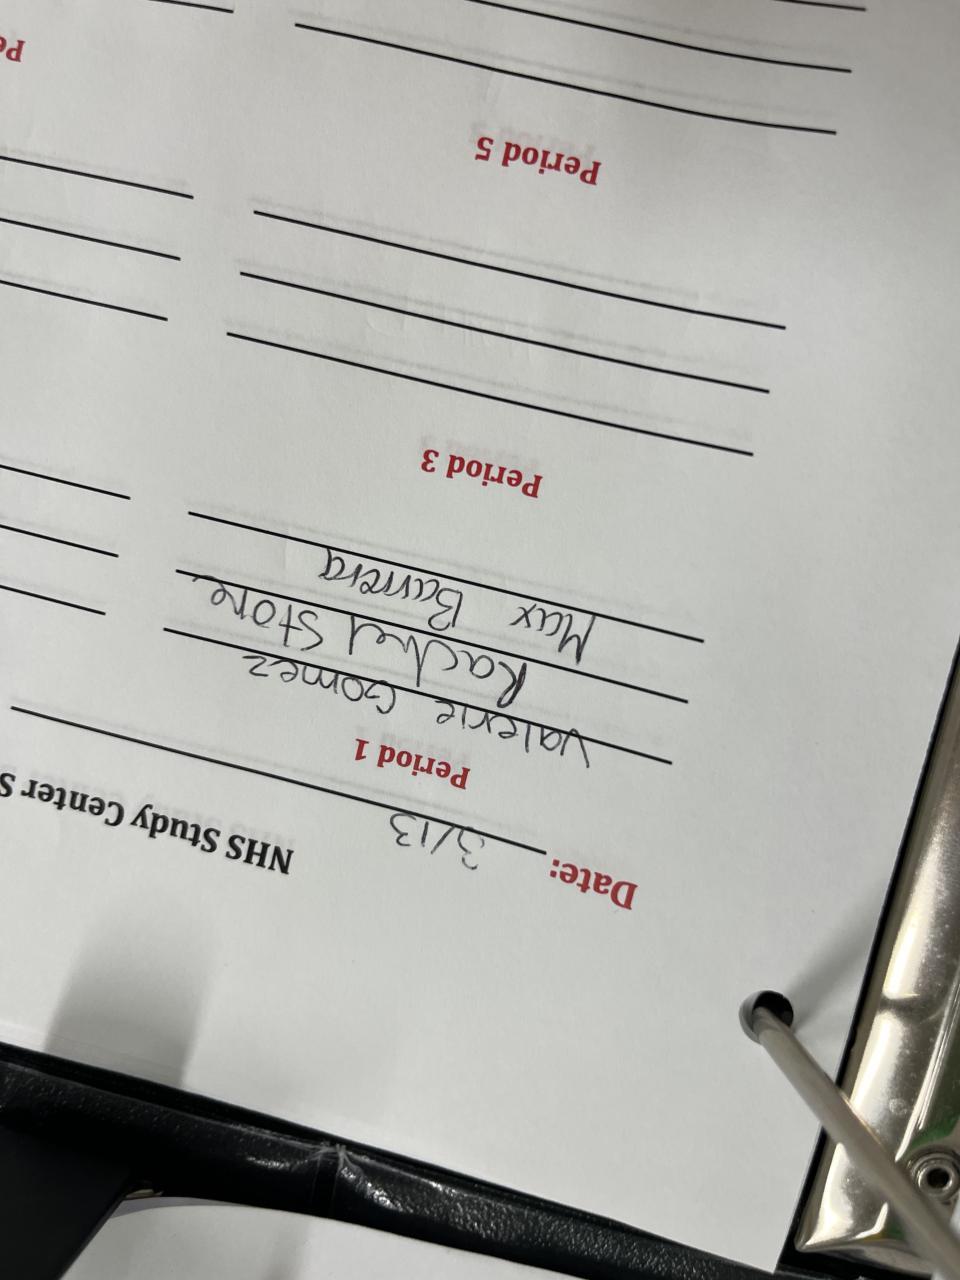 NHS Study Center S
Date: 3/13
Period 1
Valerie Gomez
Rachel Stone
Max Barrera
Period 3
Period 5
Pe